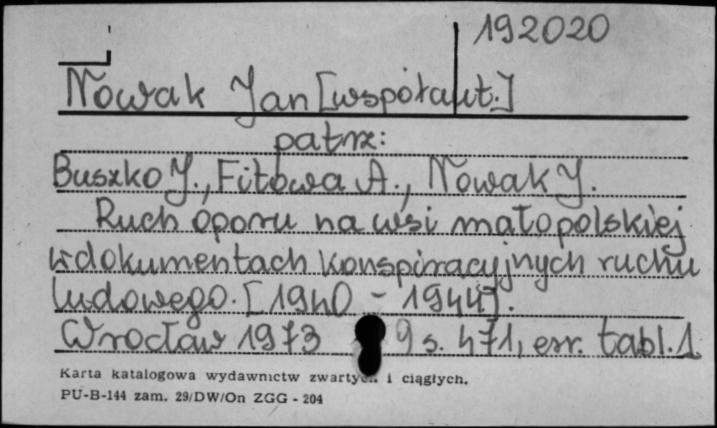 192020
Nowak Jan [współaut.]
patrz:
Buszko J., Fitowa A., Nowak J.
Ruch oporu na wsi małopolskiej
w dokumentach konspiracyjnych ruchu
ludowego. [1940 - 1944].
Wrocław 1973 9 s. 471, err. tabl. 1
Karta katalogowa wydawnictw zwartych i ciągłych.
PU-B-144 zam. 29/DW/On ZGG - 204